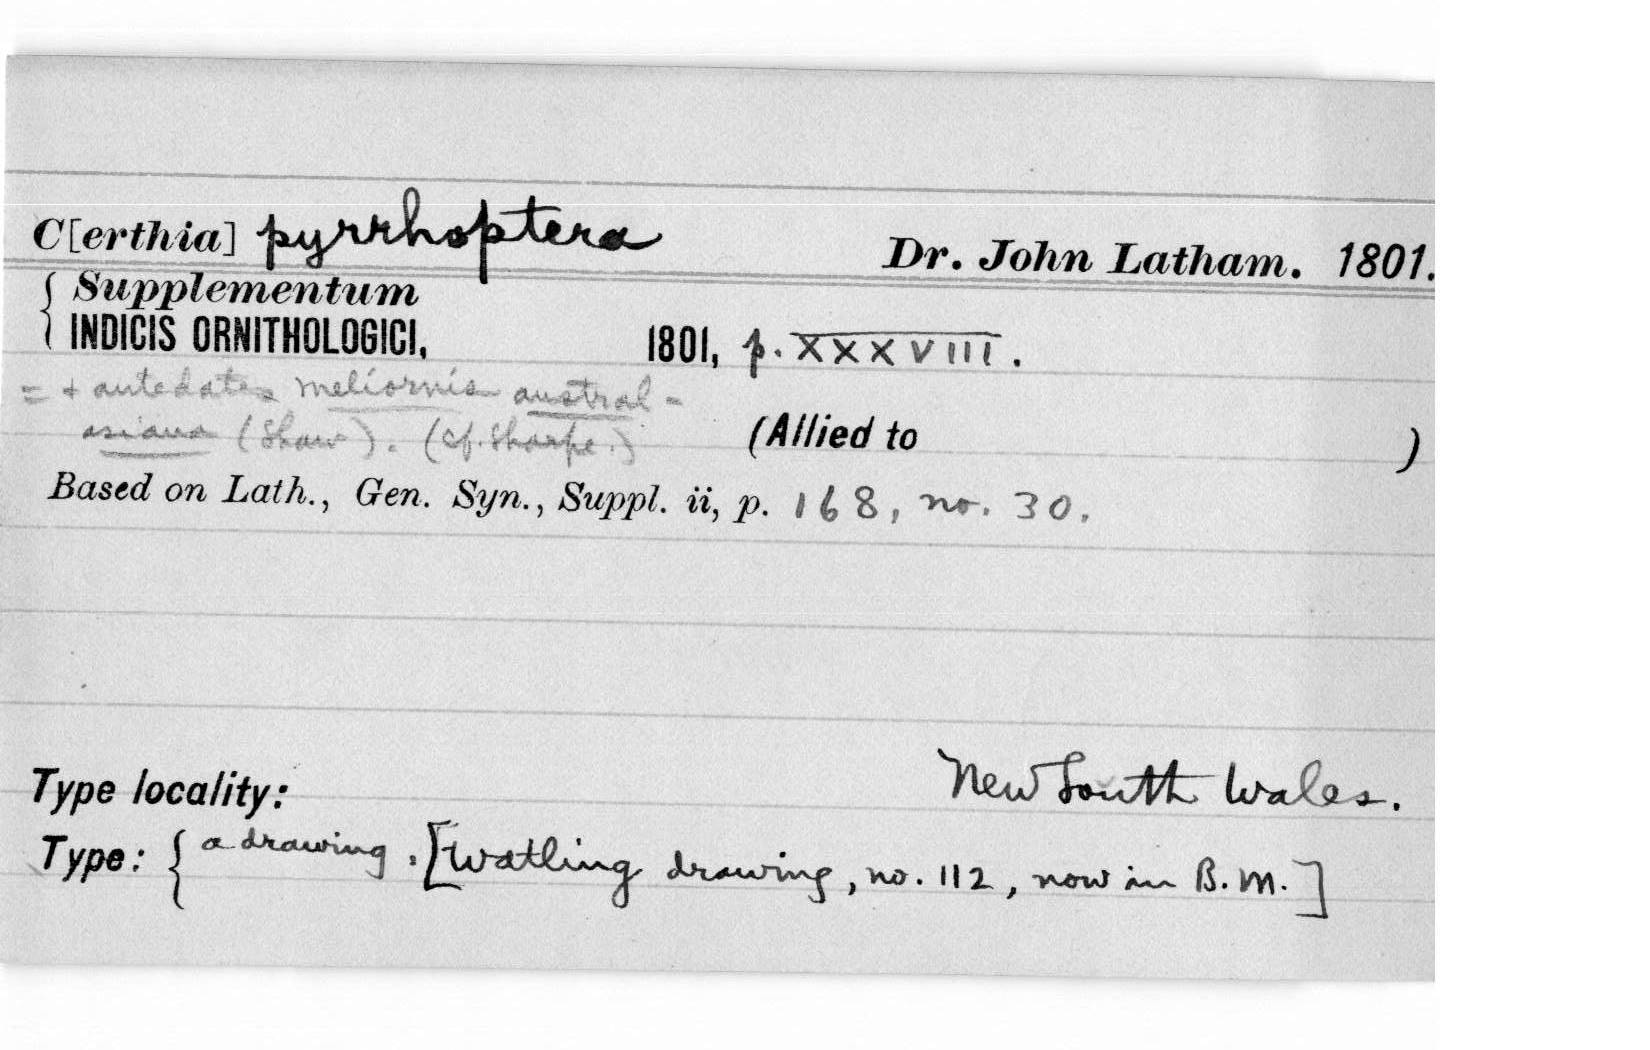 C[erthia] pyrrhoptera Dr. John Latham. 1801.
{ Supplementum
INDICIS ORNITHOLOGICI, 1801, p. XXXVIII.
= + antedates meliornis austral-
asiana (Shaw). (cf. Sharpe.) (Allied to )
Based on Lath., Gen. Syn., Suppl. ii, p. 168, no. 30.
Type locality: New South Wales.
Type: { a drawing. [Watling drawing, no. 112, now in B.M.]